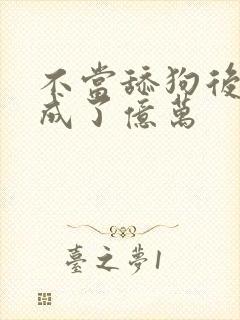 不當舔狗後
成了億萬
臺之夢1